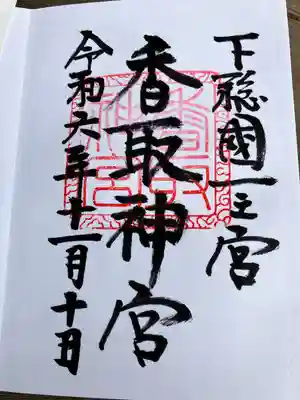 下総國一之宮
香取神宮
令和六年十一月十日
香取神宮